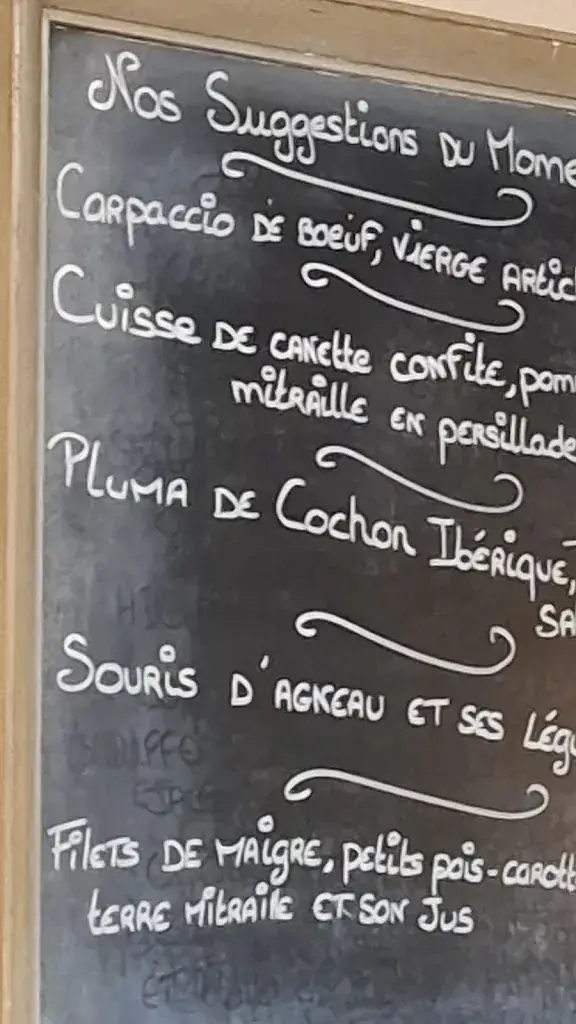 Nos Suggestions du Mome
Carpaccio de boeuf, vierge artic
Cuisse de canette confite, pom
mitraille en persillade
Pluma de Cochon Ibérique,
sa
Souris d'agneau et ses légu
Filets de maigre, petits pois-carott
terre mitraile et son jus